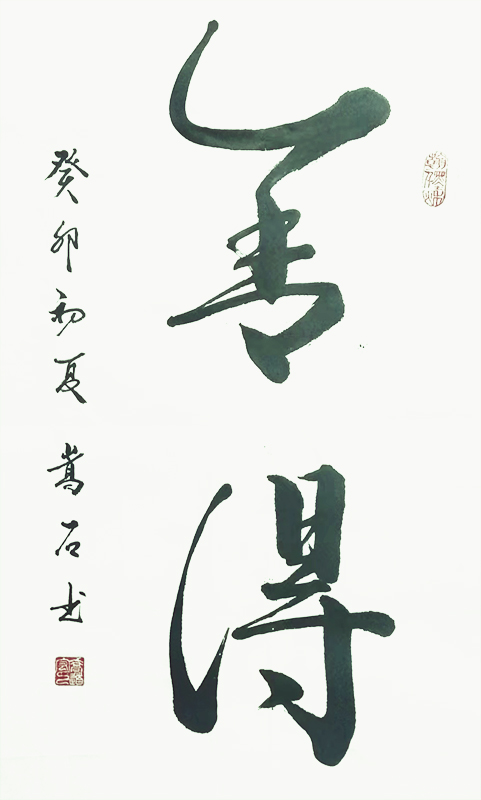 舍得
癸卯初夏 嵩石书